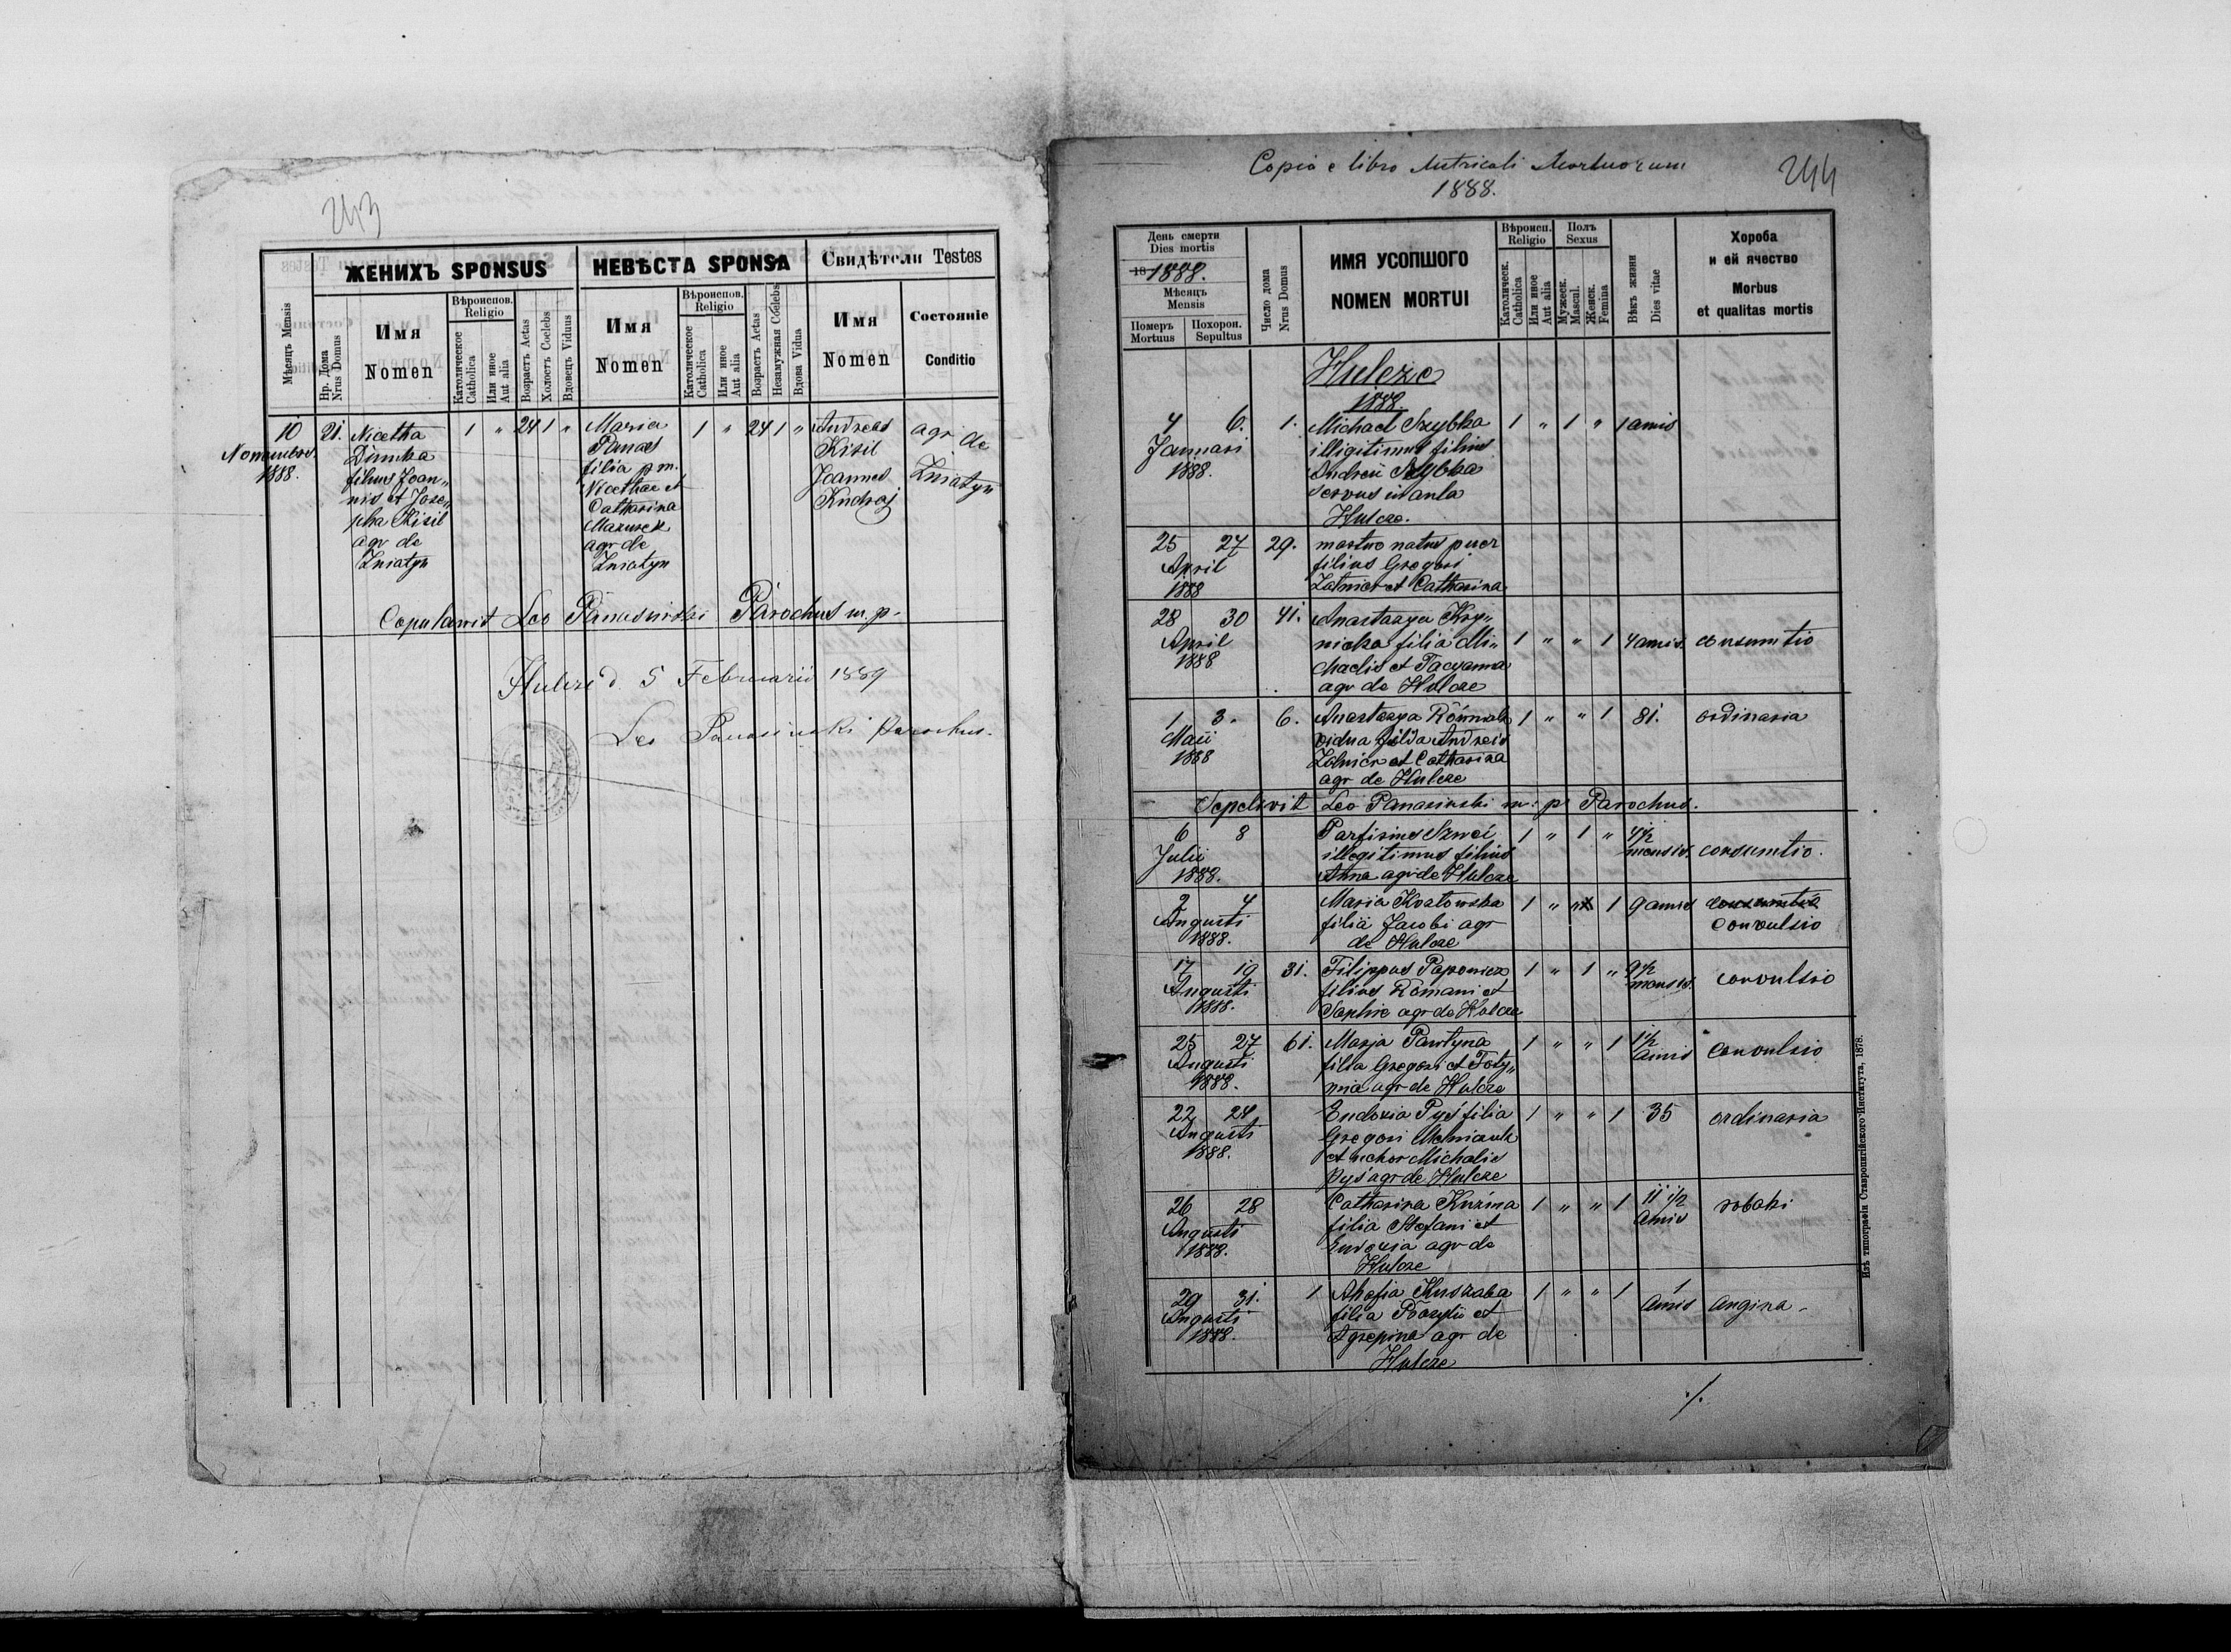 243
ЖЕНИХЪ SPONSUS
НЕВѢСТА SPONSA
Свидѣтели Testes
Мѣсяцъ Mensis
Нр. Дома
Nrus Domus
Имя
Nomen
Вѣроиспов.
Religio
Католическое
Catholica
Или иное
Aut alia
Возрастъ Aetas
Холостъ Coelebs
Вдовецъ Viduus
Имя
Nomen
Вѣроиспов.
Religio
Католическое
Catholica
Или иное
Aut alia
Возрастъ Aetas
Незамужная Coelebs
Вдова Vidua
Имя
Nomen
Состояніе
Conditio
10 21. Nicetha 1 " 24 1 " Maria 1 " 24 1 " Andreas agr. de
1888. Dimka Panas Kisil Zniatyn
filius Joan„ filia p. m. Joannes
nis et Jose„ Nicethae et Kudraj
pha Kisil Catharina
agr de Mazurek
Zniatyn agr de
Zniatyn
Copulavit Leo Panasinski Parochus m. p.
Hulcze d. 5 Februarii 1889
Leo Panasinski parochus.
Copia e libro Metricali Mortuorum
1888.
244
День смерти
Dies mortis
18 1888.
Мѣсяцъ
Mensis
Померъ
Mortuus
Похорон.
Sepultus
Число дома
Nrus Domus
ИМЯ УСОПШОГО
NOMEN MORTUI
Вѣроисп.
Religio
Католическ.
Catholica
Или иное
Aut alia
Полъ
Sexus
Мужеск.
Mascul.
Женск.
Femina
Вѣкъ жизни
Dies vitae
Хороба
и ей ячество
Morbus
et qualitas mortis
Hulcze
1888
4 6. 1. Michael Szybka 1 " 1 " 1 annis
Januari illigitimus filius
1888. Andreii Szybka
servus in aula
Hulcze.
25 27 29. mortuo natus puer
April filius Gregori
1888 Zolnier et Catharina
28 30 41. Anastazya Kry„
April nicka filia Mi„ 1 " " 1 4 annis. consumtio
1888 chaelis et Tacyanna
agr de Hulcze
1 3. 6. Anastazya 1 " " 1 81. ordinaria
Maii vidua filia Andreis
1888 Zolnier et Catharina
agr de Hulcze
Sepelivit Leo Panasinski m. p. Parochus.
6 8 Parfirius Szwec 1 " 1 " 4 1/2
Julii illegitimus filius mensis. consumtio.
1888. Anna agr de Hulcze
2 4 Maria Kozlowska 1 " 1 9 annis consumtio
Augusti filia Jacobi agr convulsio
1888. de Hulcze
17 19 31. Filippus 1 " 1 " 9 1/2
Augusti filius Romani et mensis. convulsio
1888. Sophie agr de Hulcze
25 27 61. Marja Pawtyna 1 " " 1 1 1/2
Augusti filia Gregori et Foty„ annis convulsio
1888. nnia agr de Hulcze
22 24 Eudoxia Pyś filia 1 " " 1 35 ordinaria
Augusti Gregori Melniczuk
1888. et uchor Michalis
Pyś agr de Hulcze
26 28 Catharina Kuzma 1 " " 1 11 1/2 robaki
Augusti filia Stefani et annis
1888. Eudoxia agr de
Hulcze
29 31. 1 Ahafia 1 " " 1 1
Augusti filia Bazylii et annis angina.
1888. Agrepina agr de
Hulcze
./.
Изъ типографіи Ставропигійского Института, 1878.